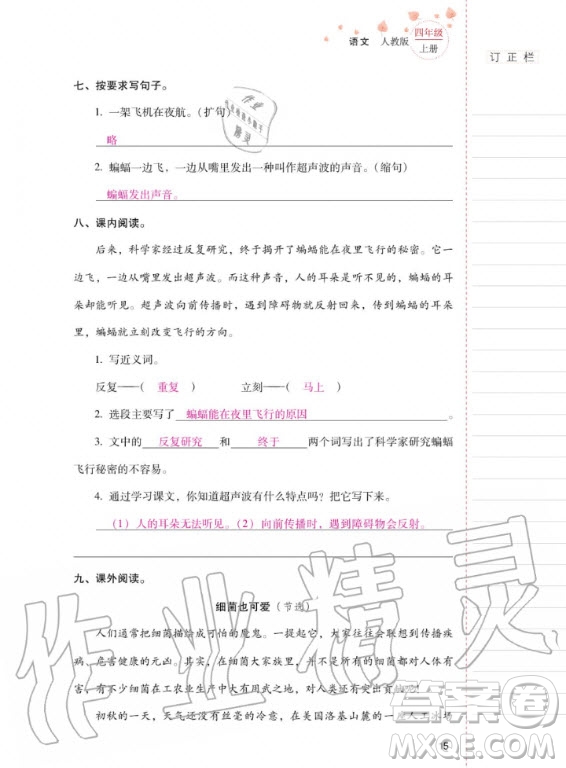 语文 人教版 四年级
上册
订正栏
七、按要求写句子。
1. 一架飞机在夜航。（扩句）
略
2. 蝙蝠一边飞，一边从嘴里发出一种叫作超声波的声音。（缩句）
蝙蝠发出声音。
八、课内阅读。
后来，科学家经过反复研究，终于揭开了蝙蝠能在夜里飞行的秘密。它一
边飞，一边从嘴里发出超声波。而这种声音，人的耳朵是听不见的，蝙蝠的耳
朵却能听见。超声波向前传播时，遇到障碍物就反射回来，传到蝙蝠的耳朵
里，蝙蝠就立刻改变飞行的方向。
1. 写近义词。
反复——（ 重复 ） 立刻——（ 马上 ）
2. 选段主要写了 蝙蝠能在夜里飞行的原因 。
3. 文中的 反复研究 和 终于 两个词写出了科学家研究蝙蝠
飞行秘密的不容易。
4. 通过学习课文，你知道超声波有什么特点吗？把它写下来。
（1）人的耳朵无法听见。（2）向前传播时，遇到障碍物会反射。
九、课外阅读。
细菌也可爱（节选）
人们通常把细菌描绘成可怕的魔鬼。一提起它，大家往往会联想到传播疾
病、危害健康的元凶。其实，在细菌大家族里，并不都是这样，有的对人体有
害，有不少细菌在工农业生产中大有用武之地，对人类社会还有突出贡献
初秋的一天，天气还没有丝毫的冷意，在美国洛基山麓的一座人工水坝
15
作业精灵
答案卷